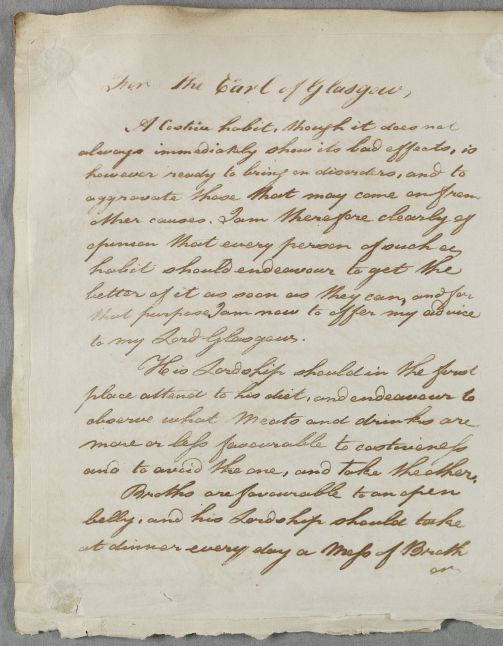 For the Earl of Glasgow,
A Costive habit, though it does not
always immediately show its bad effects, is
however ready to bring on disorders, and to
aggravate those that may come on from
other causes. I am therefore clearly of
opinion that every person of such a
habit should endeavour to get the
better of it as soon as they can, and for
that purpose I am now to offer my advice
to my Lord Glasgow.
His Lordship should in the first
place attend to his diet, and endeavour to
observe what Meats and drinks are
more or less favourable to costiveness
and to avoid the one, and take the other.
Broths are favourable to an open
belly, and his Lordship should take
at dinner every day a Mess of Broth
or